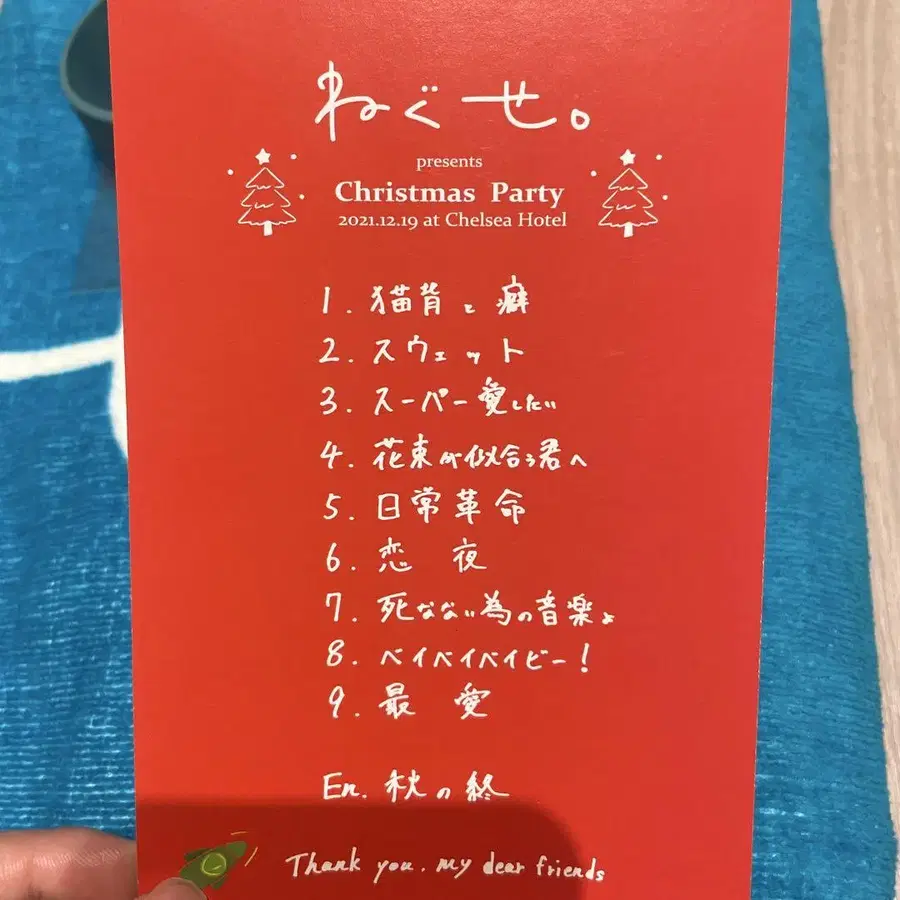 ねぐせ。
presents
Christmas Party
2021.12.19 at Chelsea Hotel
1. 猫背と癖
2. スウェット
3. スーパー愛したい
4. 花束が似合う君へ
5. 日常革命
6. 恋 夜
7. 死なない為の音楽よ
8. ベイベイベイビー!
9. 最 愛
En. 秋の終
Thank you. my dear friends